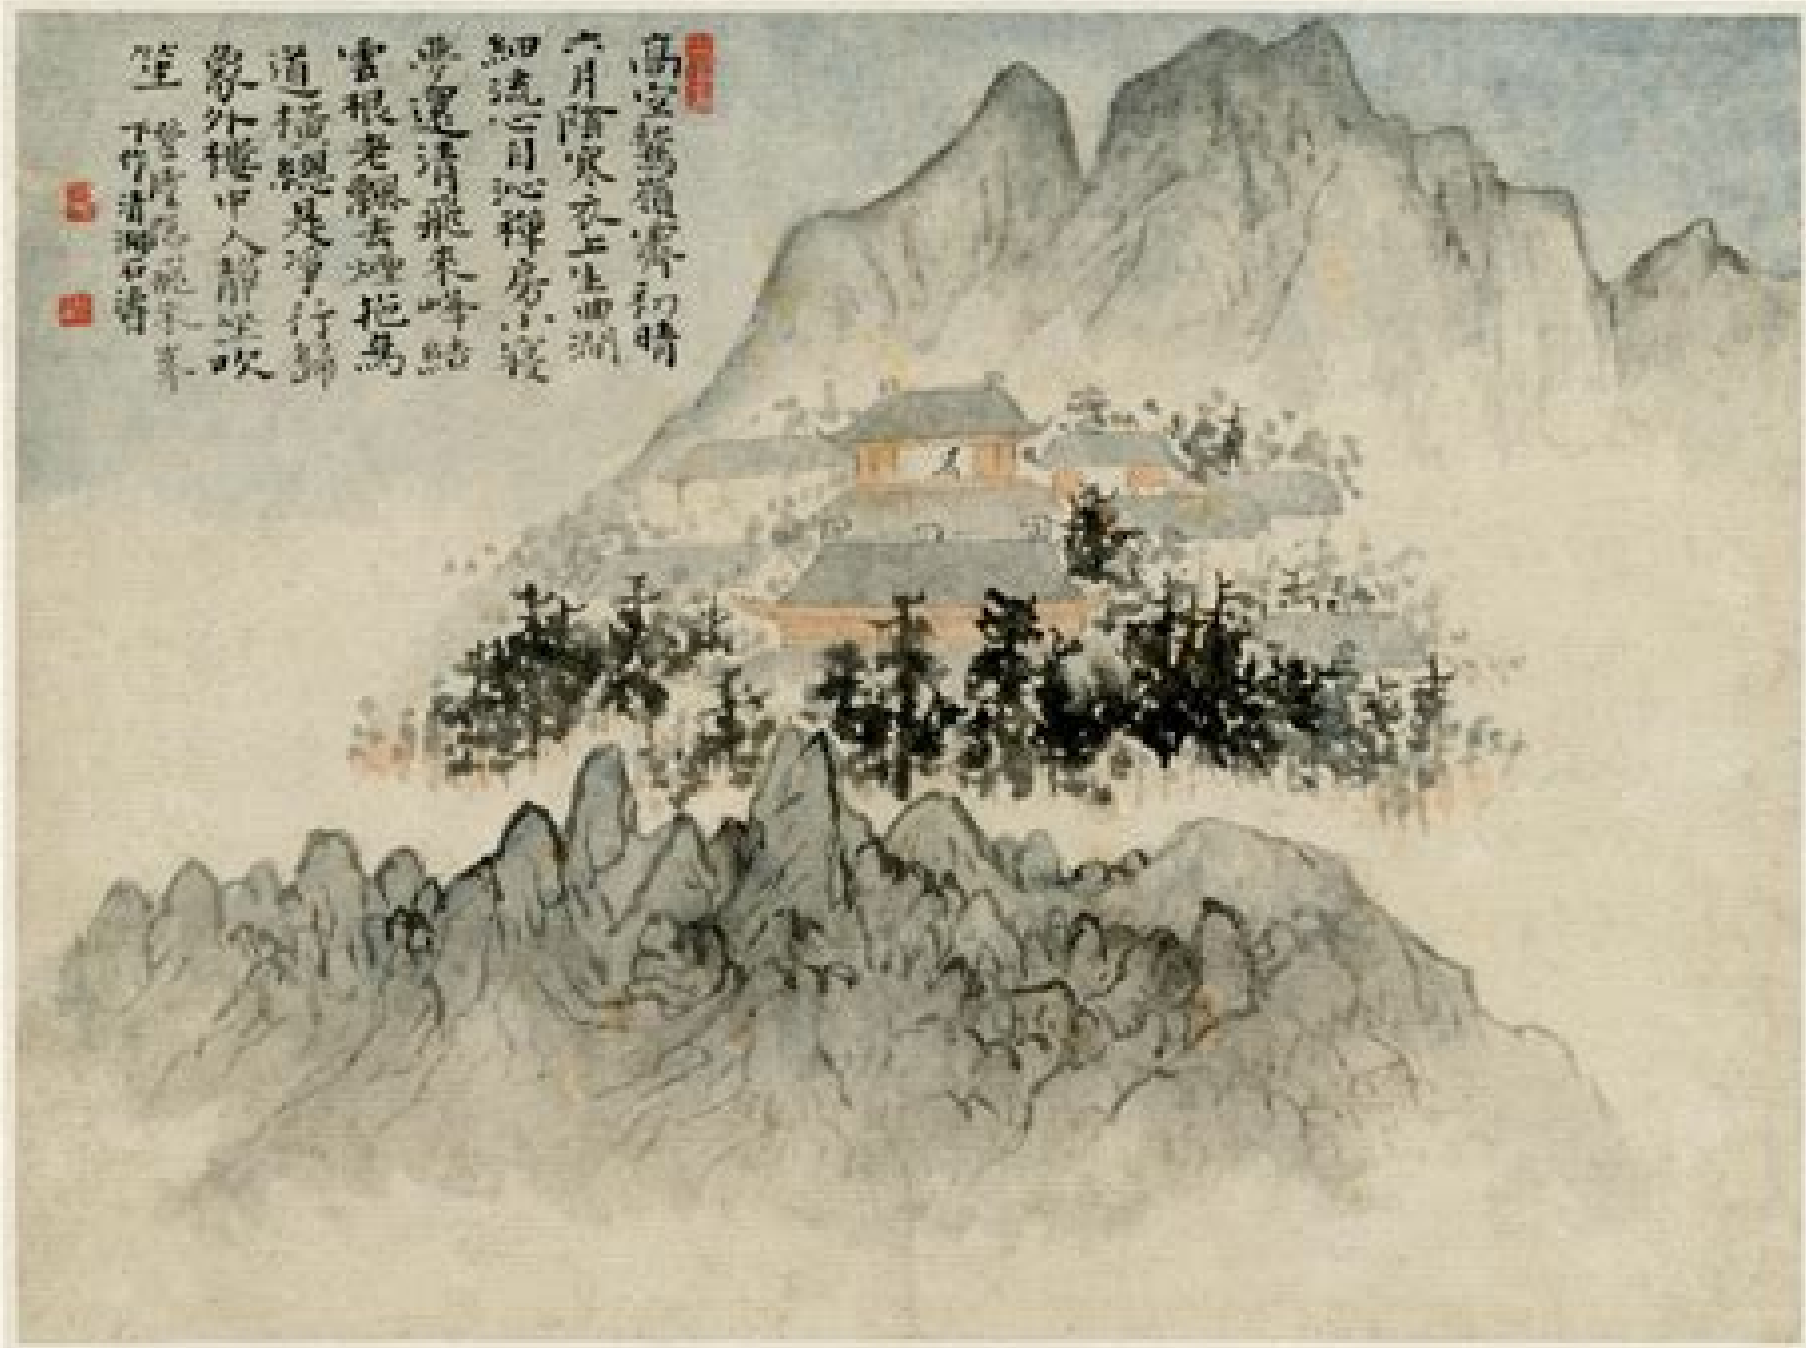 高空鷲嶺霽初晴
六月陰寒衣上生曲澗
細流心目沁禪房小寢
夢還清飛來峰結
雲根老飄去煙拖馬
道橫總是淨行歸
象外中人靜坐吹
笙
登隱飛來峯
下作清湘石濤